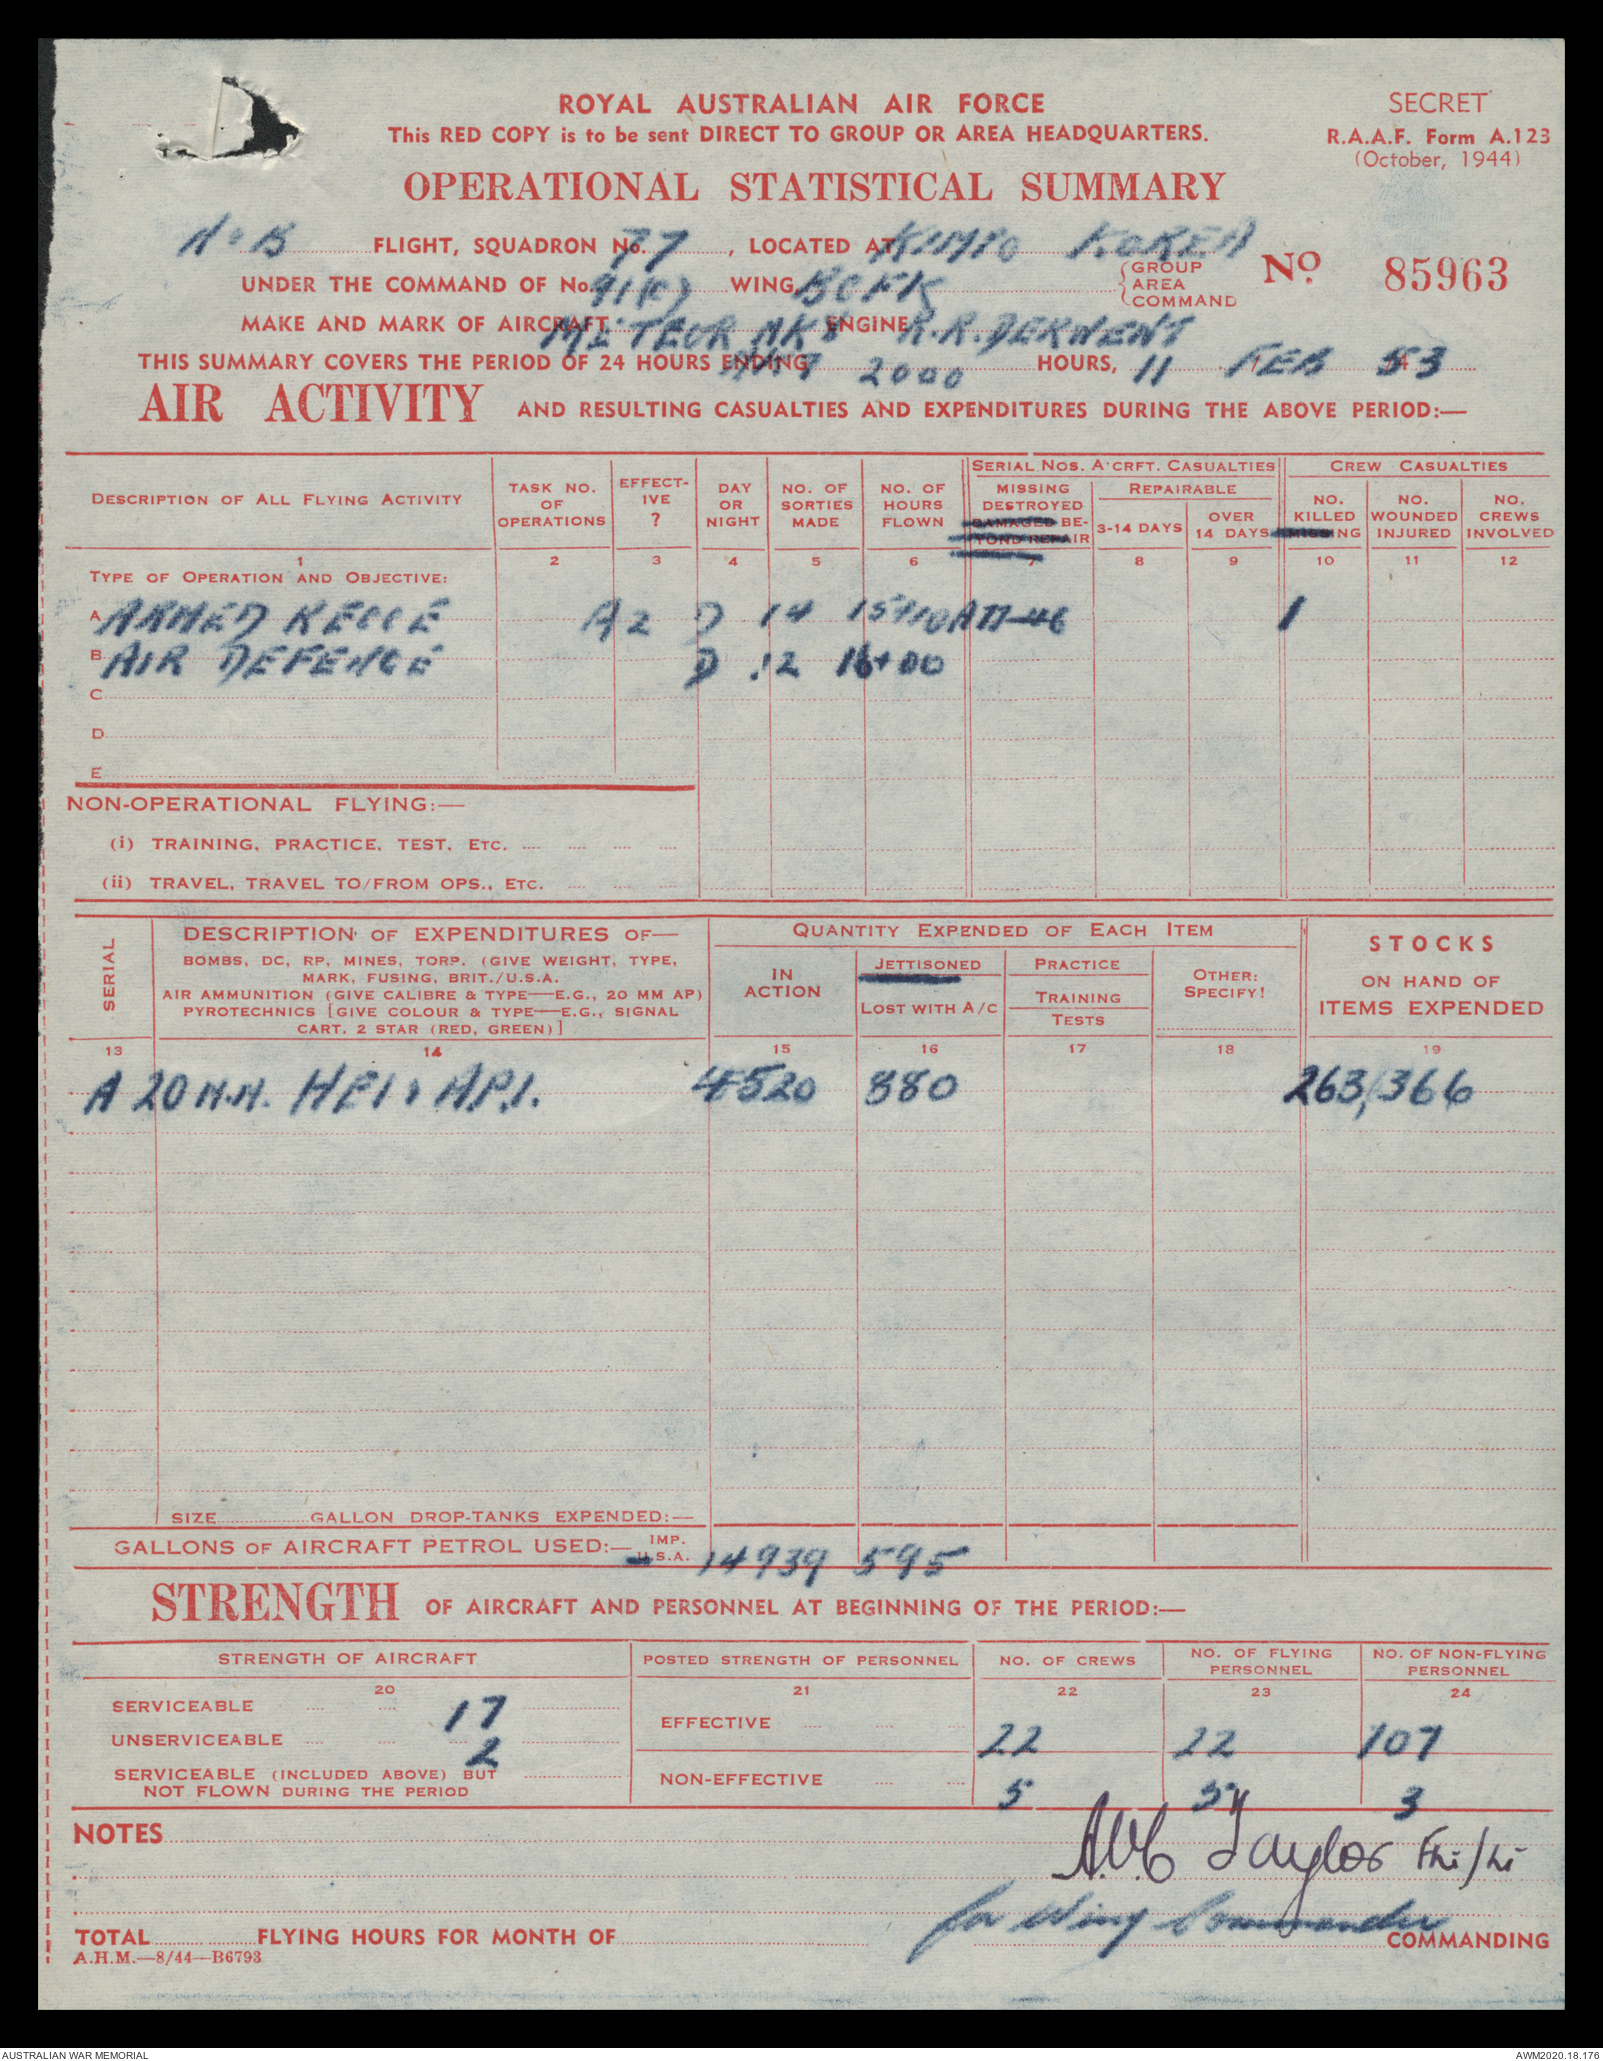 ROYAL AUSTRALIAN AIR FORCE
This RED COPY is to be sent DIRECT TO GROUP OR AREA HEADQUARTERS.
SECRET
R.A.A.F. Form A.123
(October, 1944)
OPERATIONAL STATISTICAL SUMMARY
FLIGHT, SQUADRON No. 77, LOCATED AT KIMPO KOREA
UNDER THE COMMAND OF No. 91(C) WING, BCFK {GROUP AREA COMMAND
No. 85963
MAKE AND MARK OF AIRCRAFT METEOR MK 8 ENGINE R.R. DERWENT
THIS SUMMARY COVERS THE PERIOD OF 24 HOURS ENDING 2000 HOURS, 11 FEB 53
AIR ACTIVITY AND RESULTING CASUALTIES AND EXPENDITURES DURING THE ABOVE PERIOD:—
DESCRIPTION OF ALL FLYING ACTIVITY
TASK NO. OF OPERATIONS
EFFECT-IVE ?
DAY OR NIGHT
NO. OF SORTIES MADE
NO. OF HOURS FLOWN
SERIAL NOS. A'CRFT. CASUALTIES
MISSING DESTROYED DAMAGED BE-YOND REPAIR
REPAIRABLE
3-14 DAYS
OVER 14 DAYS
CREW CASUALTIES
NO. KILLED MISSING
NO. WOUNDED INJURED
NO. CREWS INVOLVED
1 2 3 4 5 6 7 8 9 10 11 12
TYPE OF OPERATION AND OBJECTIVE:
A ARMED RECCE A2 D 14 15+10 A77-46 1
B AIR DEFENCE D 12 16+00
C
D
E
NON-OPERATIONAL FLYING:—
(i) TRAINING, PRACTICE, TEST, ETC.
(ii) TRAVEL, TRAVEL TO/FROM OPS., ETC.
SERIAL
DESCRIPTION OF EXPENDITURES OF—
BOMBS, DC, RP, MINES, TORP. (GIVE WEIGHT, TYPE,
MARK, FUSING, BRIT./U.S.A.
AIR AMMUNITION (GIVE CALIBRE & TYPE—E.G., 20 MM AP)
PYROTECHNICS [GIVE COLOUR & TYPE—E.G., SIGNAL
CART. 2 STAR (RED, GREEN)]
QUANTITY EXPENDED OF EACH ITEM
IN ACTION
JETTISONED
LOST WITH A/C
PRACTICE
TRAINING
TESTS
OTHER: SPECIFY!
STOCKS
ON HAND OF
ITEMS EXPENDED
13 14 15 16 17 18 19
A 20 M.M. HEI & API. 4520 880 263,366
SIZE GALLON DROP-TANKS EXPENDED:—
GALLONS OF AIRCRAFT PETROL USED:— IMP. U.S.A. 14939 595
STRENGTH OF AIRCRAFT AND PERSONNEL AT BEGINNING OF THE PERIOD:—
STRENGTH OF AIRCRAFT
POSTED STRENGTH OF PERSONNEL
NO. OF CREWS
NO. OF FLYING PERSONNEL
NO. OF NON-FLYING PERSONNEL
20 21 22 23 24
SERVICEABLE 17
UNSERVICEABLE 2
SERVICEABLE (INCLUDED ABOVE) BUT
NOT FLOWN DURING THE PERIOD
EFFECTIVE 22 22 107
NON-EFFECTIVE 5 5 3
NOTES
Taylor
for Wing Commander
COMMANDING
TOTAL FLYING HOURS FOR MONTH OF
A.H.M.—8/44—B6793
AUSTRALIAN WAR MEMORIAL
AWM2020.18.176